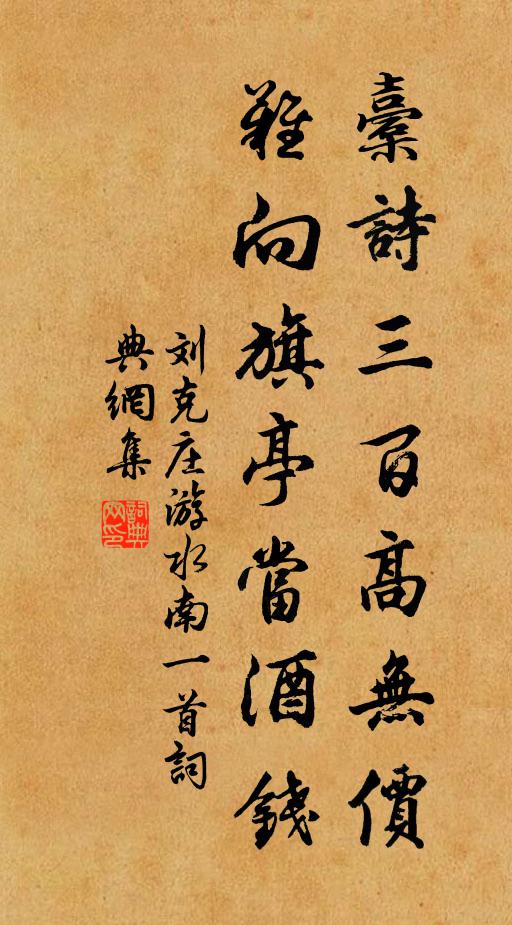 橐詩三百高無價
難向旗亭當酒錢
刘克庄游水南一首詞
典網集
詞典
网印